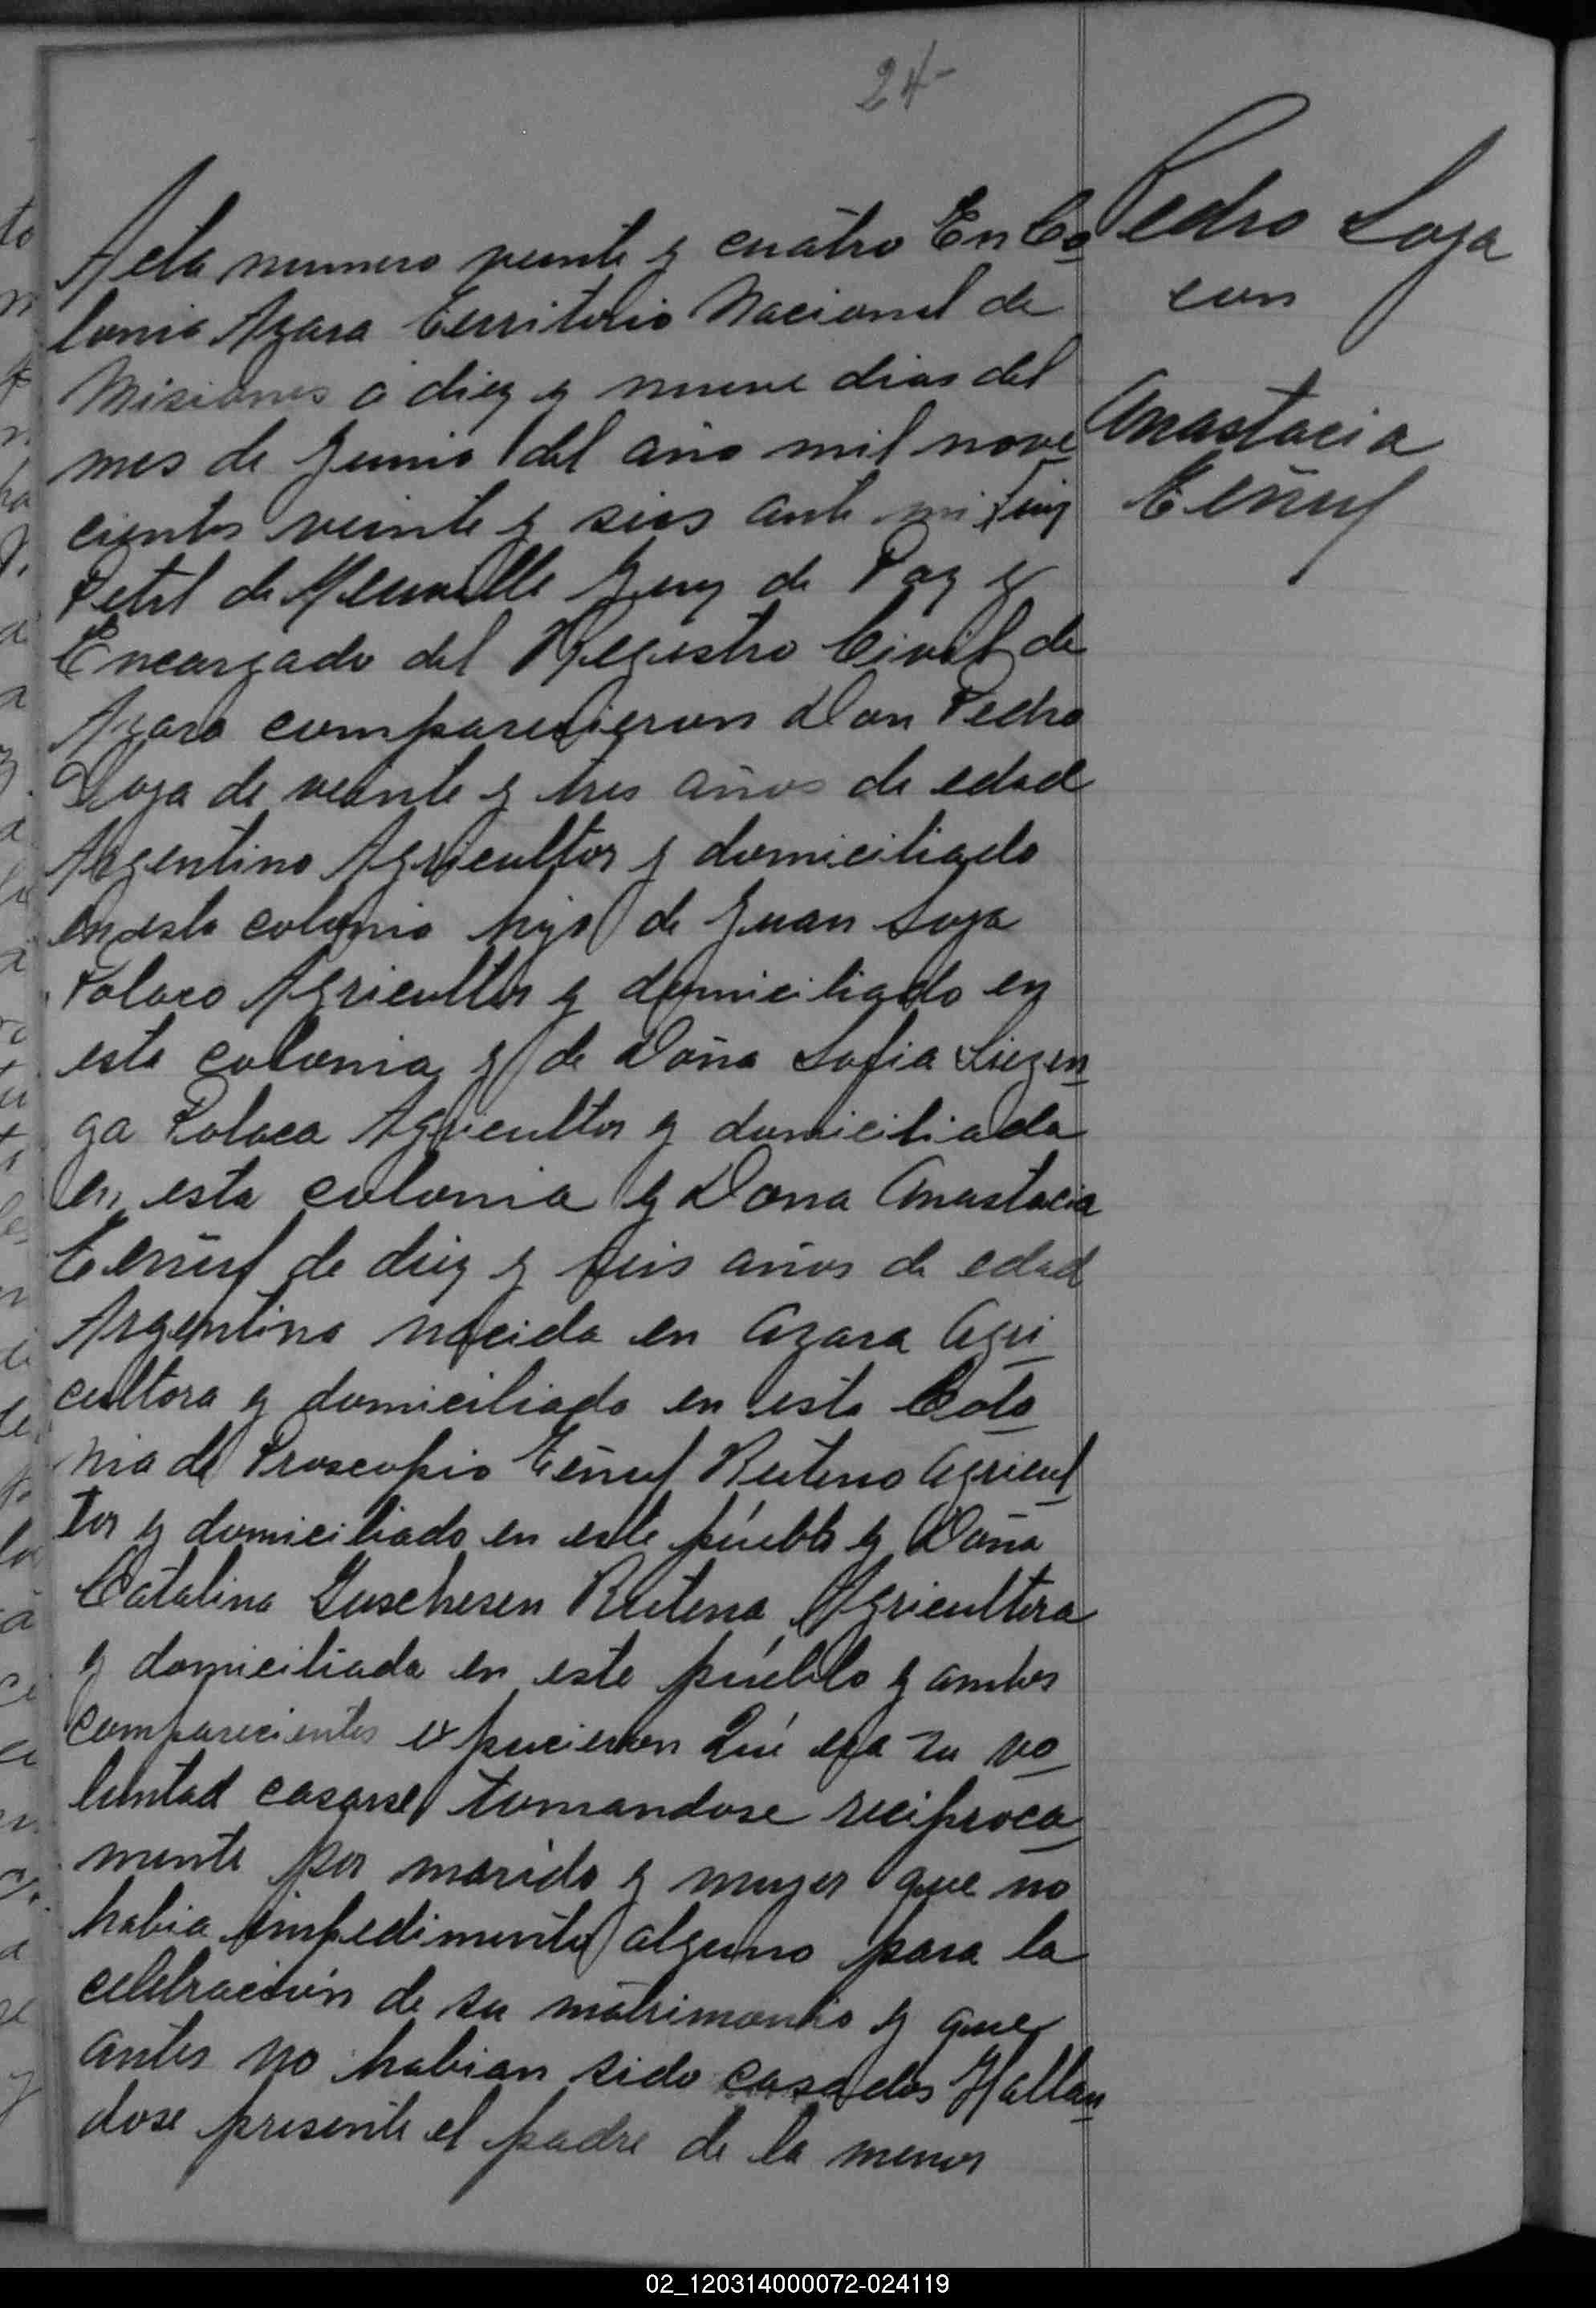 24-
Acta numero veinte y cuatro En Co
lonia Azara Territorio Nacional de
Misiones á diez y nueve dias del
mes de Junio del año mil nove
cientos veinte y seis ante mi
Petit de Meurville Juez de Paz y
Encargado del Registro Civil de
Azara comparecieron Don Pedro
Soja de veinte y tres años de edad
Argentino Agricultor y domiciliado
en esta colonia hijo de Juan Soja
Polaco Agricultor y domiciliado en
esta colonia y de Doña Sofia Siezen
ga Polaca Agricultor y domiciliada
en esta colonia y Dona Anastacia
Eeñuf de diez y seis años de edad
Argentina nacida en Azara Agri
cultora y domiciliada en esta Colo
nia de Proscopio Eeñuf Ruteno Agricul
tor y domiciliado en este púeblo y Doña
Catalina Juschesen Rutena Agricultora
y domiciliada en este púeblo y ambos
comparecientes expucieron Qué era zu vo
luntad casarse tomandose reciproca
mente por marido y mujer que no
habia impedimento alguno para la
celebración de su matrimonio y que
antes no habian sido casados Hallan
dose presente el padre de la menor
Pedro Soja
con
Anastacia
Eeñuf
02_120314000072-024119